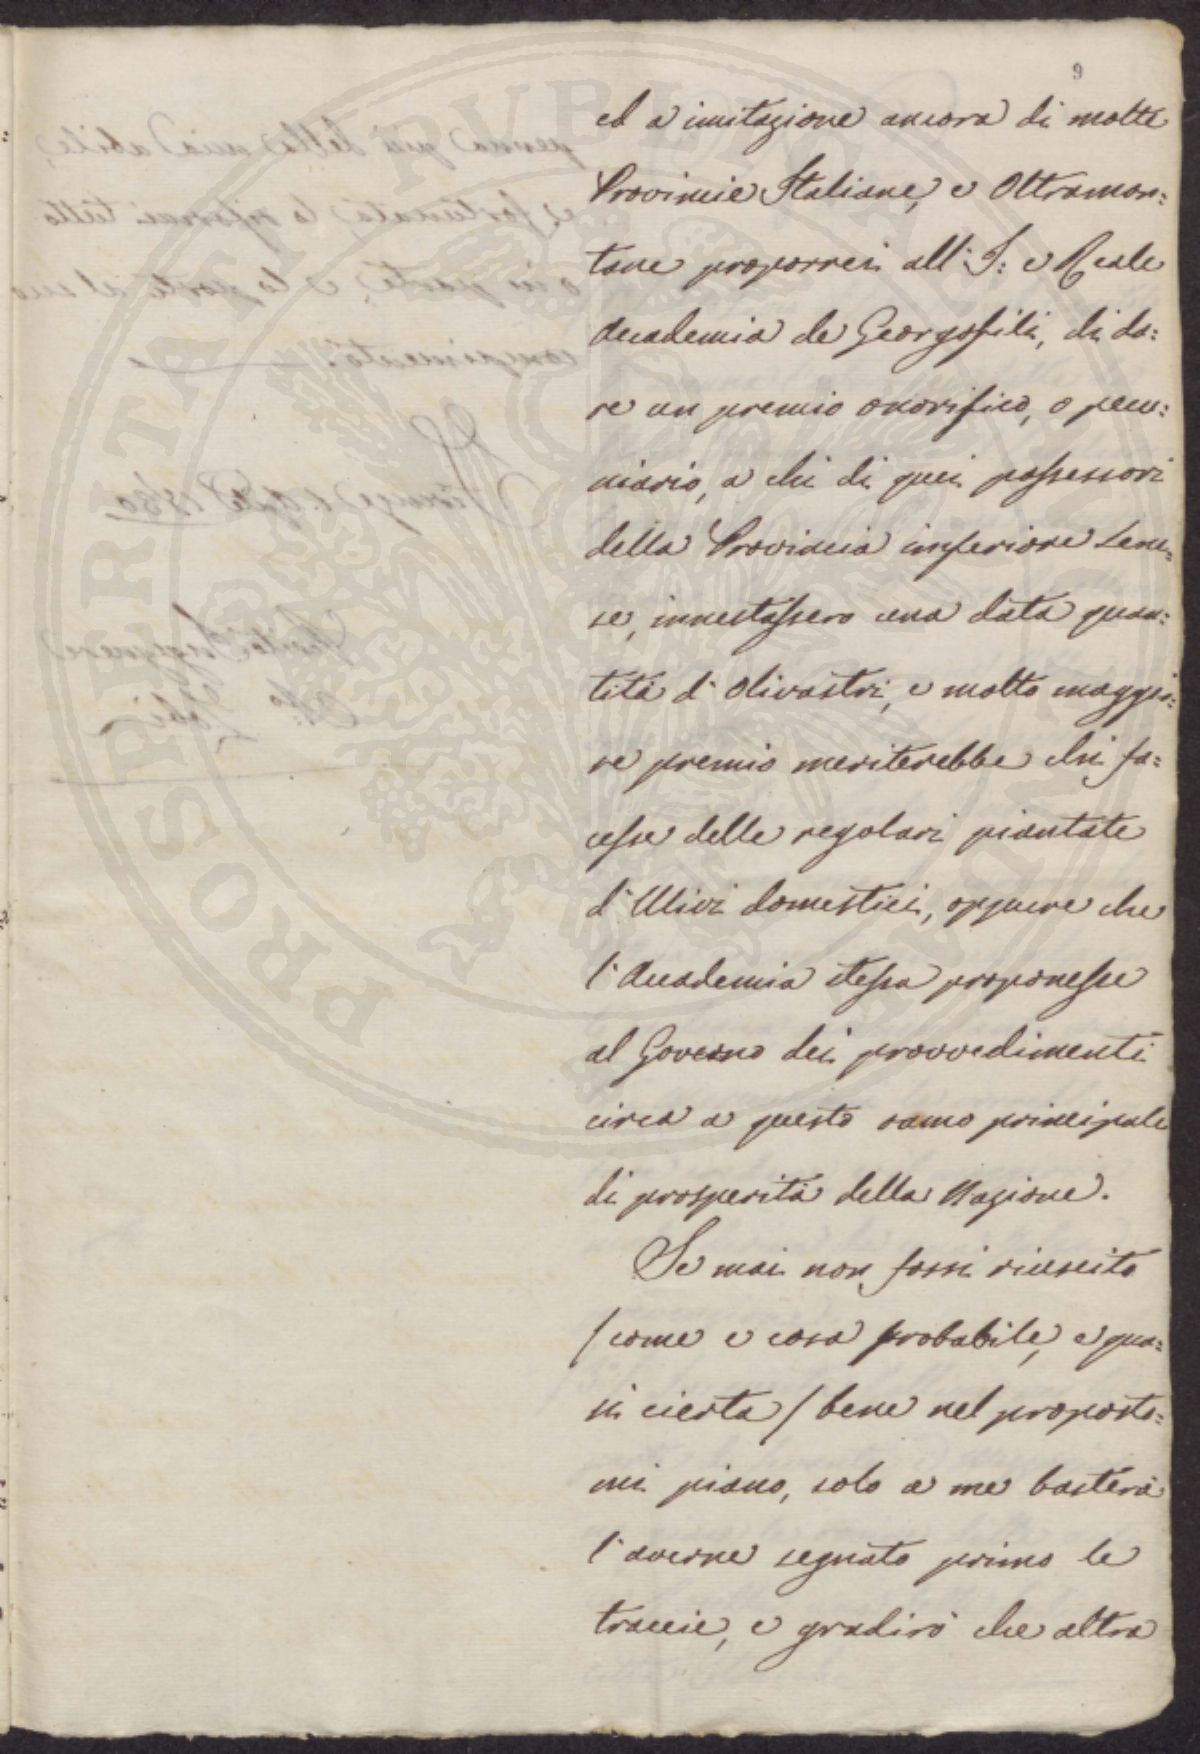 9
ed a imitazione ancora di molte
Provincie Italiane, e Oltramon:
tane proporrei all' I: e Reale
Accademia de Georgofili, di da:
re un premio onorifico, o pecu:
niario, a chi di quei possessori
della Provincia inferiore sene:
se, innestassero una data quan:
tità d'Olivastri, e molto maggio:
re premio meriterebbe chi fa:
cesse delle regolari piantate
d'Ulivi domestici, oppure che
l'Accademia stessa proponesse
al Governo dei provvedimenti
circa a questo ramo principale
di prosperità della Nazione.
Se mai non fossi riuscito
/ come e cosa probabile, e qua:
si cierta / bene nel proposto:
mi piano, solo a me basterà
l'averne segnato primo le
traccie, e gradirò che altra
PROSPERITATI PUBLICAE